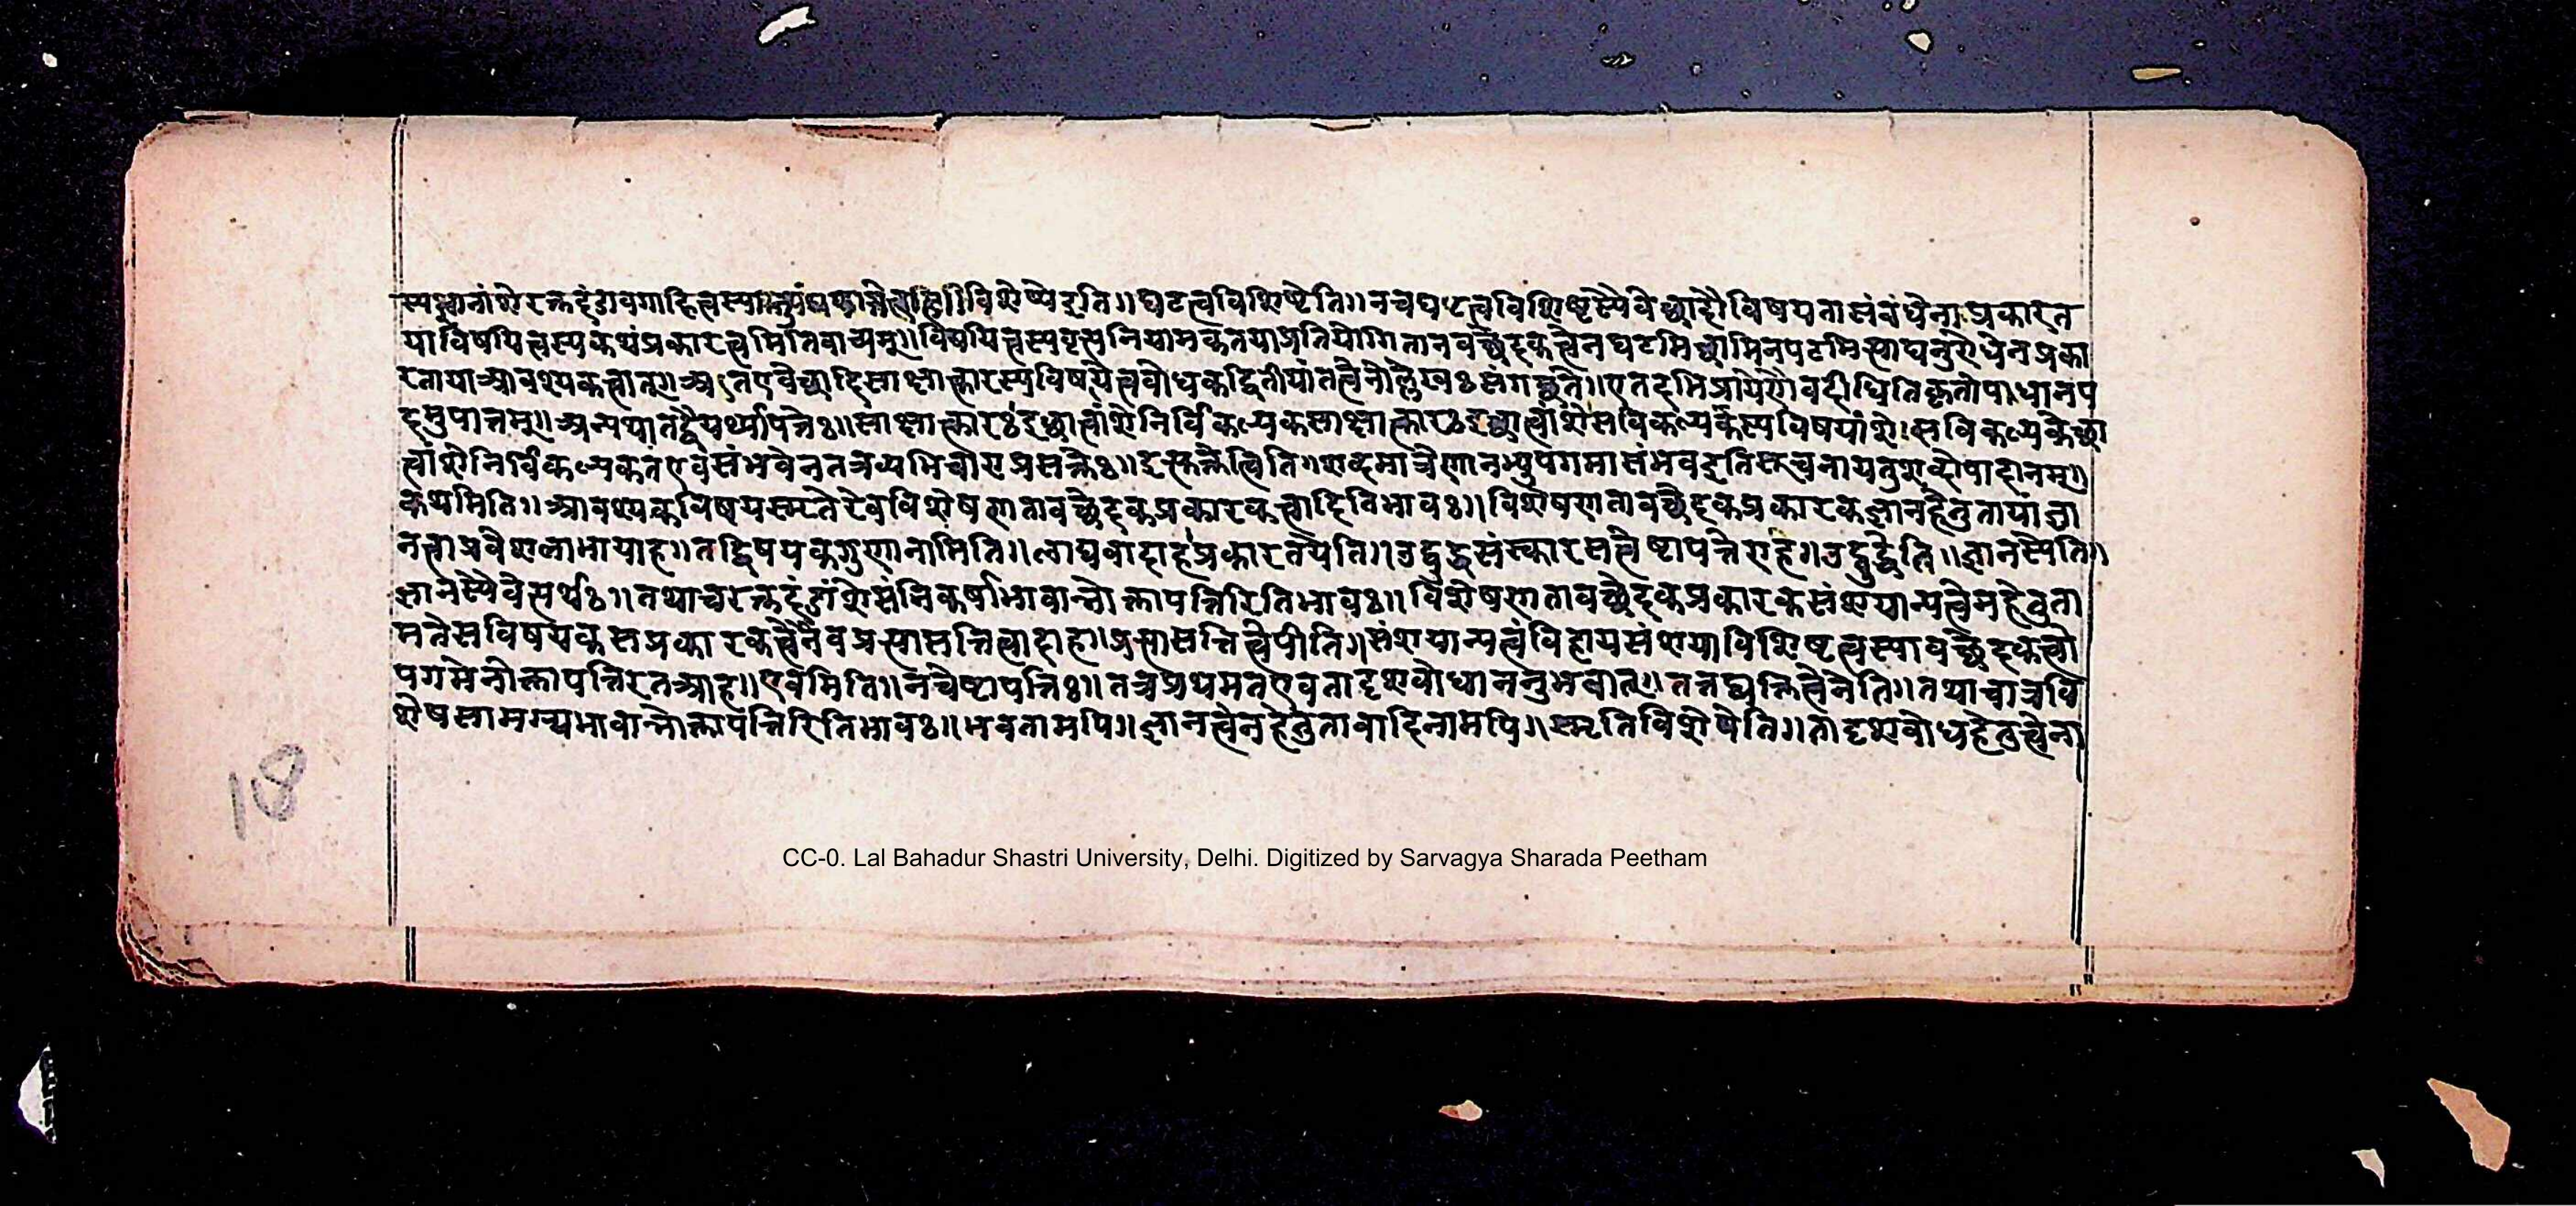 विशेष्येइति॥घटत्वविशिष्टेति॥नचघटत्वविशिष्टस्यैवेच्छादौविषयतासंबंधेनाप्रकारत
याविषयित्वस्यकथंप्रकारत्वमितिवाच्यम्॥विषयित्वस्यवृत्त्यनियामकतयाप्रतियोगितानवच्छेदकत्वेनघटमिच्छामिनपटमित्याद्यनुरोधेनप्रका
रतायाआवश्यकत्वात्॥अतएवेच्छादिसाक्षात्कारस्यविषयित्वबोधकद्वितीयांतत्वेनोल्लेखःसंगच्छते॥एतदभिप्रायेणैवदीधितिकृतोपाधानप
दमुपात्तम्॥अन्यथातद्वैयर्थ्यापत्तेः॥साक्षात्कारेइच्छात्वांशेनिर्विकल्पकसाक्षात्कारेइच्छात्वांशेसविकल्पकस्यविषयांशेसविकल्पकेच्छा
त्वांशेनिर्विकल्पकतएवसंभवेनतत्रव्यभिचाराप्रसक्तेः॥इस्तक्तेत्विति॥शब्दमात्रेणानभ्युपगमासंभवइतिसूचनायतुशब्दोपादानम्॥
कथमिति॥आवश्यकविषयस्मृतेरेवविशेषणतावच्छेदकप्रकारकत्वादितिभावः॥विशेषणतावच्छेदकप्रकारकज्ञानहेतुतायांज्ञा
नत्वाप्रवेशलाभायाह॥तद्विषयकगुणानामिति॥लाघवादाहप्रकारतयेति॥उद्बुद्धसंस्कारसत्वेइष्टापत्तेराह॥उद्बुद्धेति॥ज्ञानस्येति॥
ज्ञानस्यैवेत्यर्थः॥तथाचरक्तदंडांशेसंनिकर्षाभावान्नोक्तापत्तिरितिभावः॥विशेषणतावच्छेदकप्रकारकसंशयान्यत्वेनहेतुता
मतेसविषयकसप्रकारकत्वेनैवप्रत्यासत्तित्वादाह॥प्रत्यासत्तित्वेपीति॥संशयान्यत्वंविहायसंशयाविशिष्टत्वस्यावच्छेदकत्वो
पगमेनोक्तापत्तिरतआह॥एवमिति॥नचेष्टापत्तिः॥तत्रप्रथमतएवतादृशबोधाननुभवात्॥तत्तद्व्यक्तित्वेनेति॥तथाचात्रवि
शेषसामग्र्यभावान्नोक्तापत्तिरितिभावः॥भवतामपि॥ज्ञानत्वेनहेतुतावादिनामपि॥स्मृतिविशेषेति॥तादृशबोधहेतुत्वेना
18
CC-0. Lal Bahadur Shastri University, Delhi. Digitized by Sarvagya Sharada Peetham